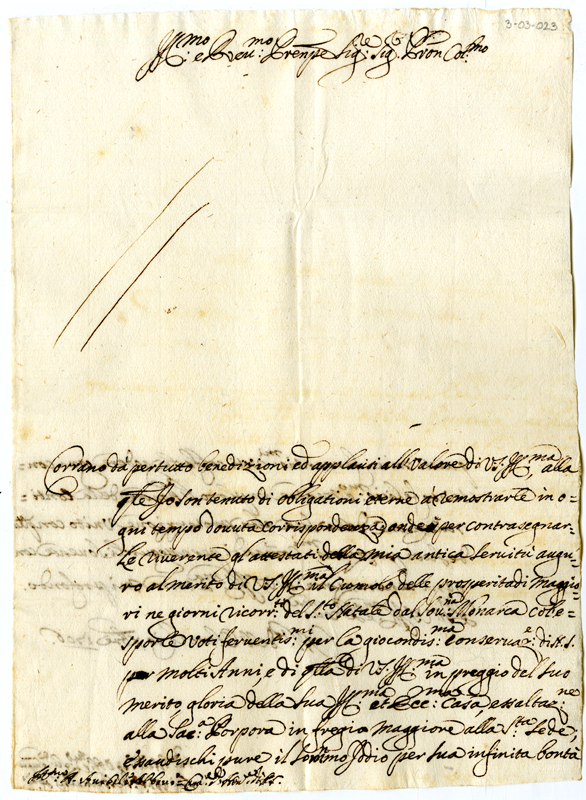 3-03-023
Ill:mo e Reu:mo Prenpe Sig:e Sig:e Pron Col:mo
Corrano da pertutto benedizioni ed applausi all Valore di V.S. Ill:ma alla
qle Io son tenuto di obligationi eterne à remostrarle in o-
gni tempo douuta corrispondenza, onde per contrasegnar-
le riuerente gl'attestati della mia antica seruitù augu-
ro al merito di V.S. Ill:ma il Cumolo delle prosperità di maggio-
ri ne giorni ricorr:ti del S:to Natale dal Sou:no Monarca coll e-
sporle Voti feruentis:mi per la giocondis:ma conserua:e di
per molti Anni, e di qlla di V.S. Ill:ma in preggio del suo
merito gloria della sua Ill:ma et Ecc:ma Casa, essaltae:ne
alla Sac:a Porpora in fregio maggiore alla S:ta Sede,
essaudischi pure il Sommo Iddio per sua infinita bontà